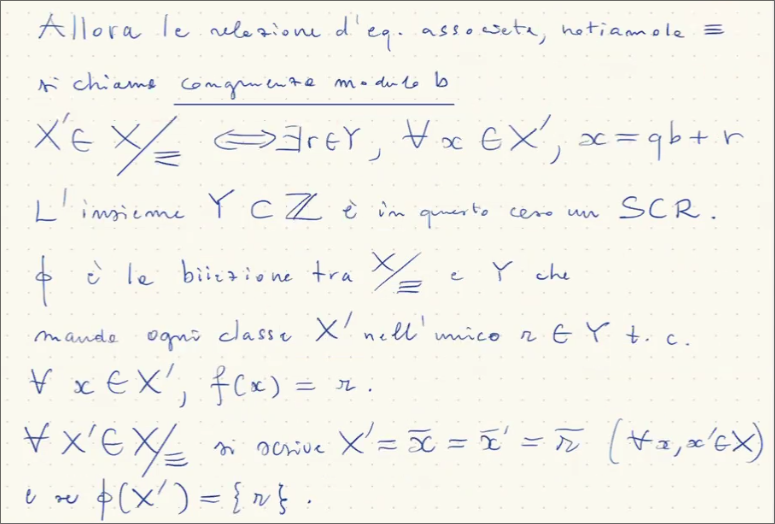 Allora la relazione d'eq. associata, notiamola ≡
si chiama congruenza modulo b
X' ∈ X/≡ ⟺ ∃ r ∈ Y, ∀ x ∈ X', x = qb + r
L'insieme Y ⊂ ℤ è in questo caso un SCR.
ϕ è la biiezione tra X/≡ e Y che
manda ogni classe X' nell'unico r ∈ Y t. c.
∀ x ∈ X', f(x) = r.
∀ X' ∈ X/≡ si scrive X' = x̄ = x̄' = r̄ (∀ x, x' ∈ X)
e se ϕ(X') = {r}.